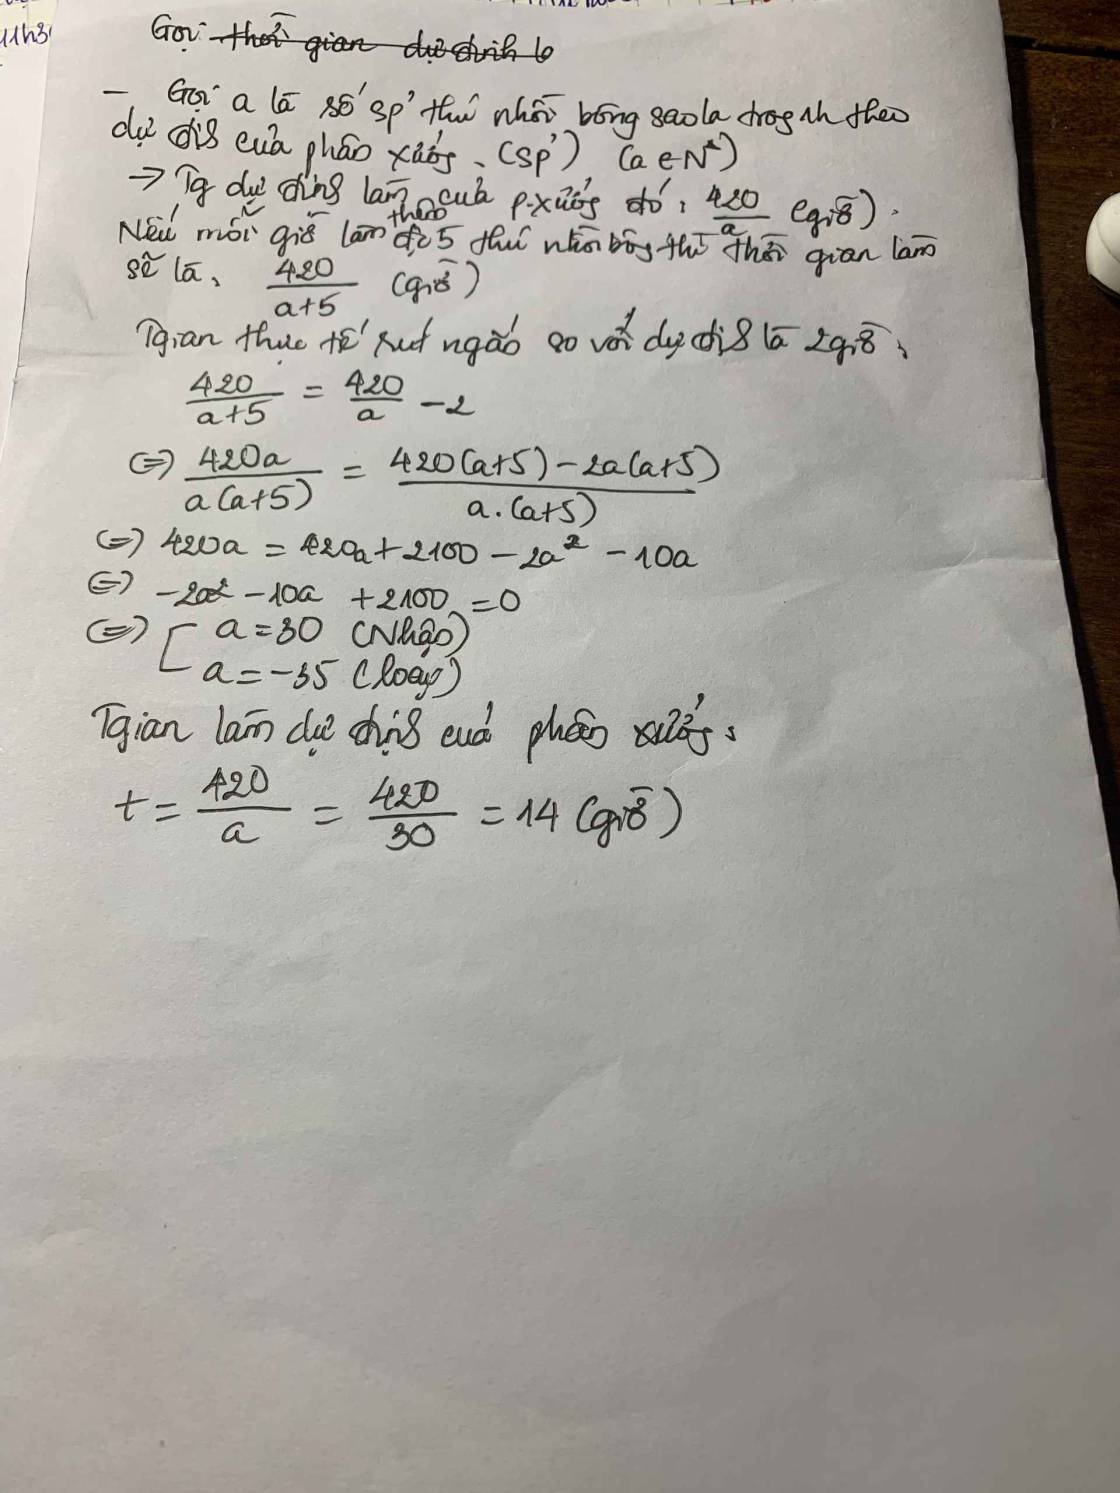 11h30
Gọi thời gian dự định là
- Gọi a là số sp' thú nhồi bông saola trog 1h theo
dự địh của phân xưởng. (sp') (a ∈ N*)
→ Tg dự định làm của p.xưởng đó: 420/a (giờ).
Nếu mỗi giờ làm thêm đc 5 thú nhồi bông thì thời gian làm
sẽ là: 420/(a+5) (giờ)
Tgian thực tế rút ngắn so với dự định là 2 giờ:
420/(a+5) = 420/a - 2
(=) 420a/(a(a+5)) = (420(a+5) - 2a(a+5))/(a.(a+5))
(=) 420a = 420a + 2100 - 2a² - 10a
(=) -2a² - 10a + 2100 = 0
(=) [ a = 30 (Nhận)
a = -35 (loại)
Tgian làm dự định của phân xưởng:
t = 420/a = 420/30 = 14 (giờ)